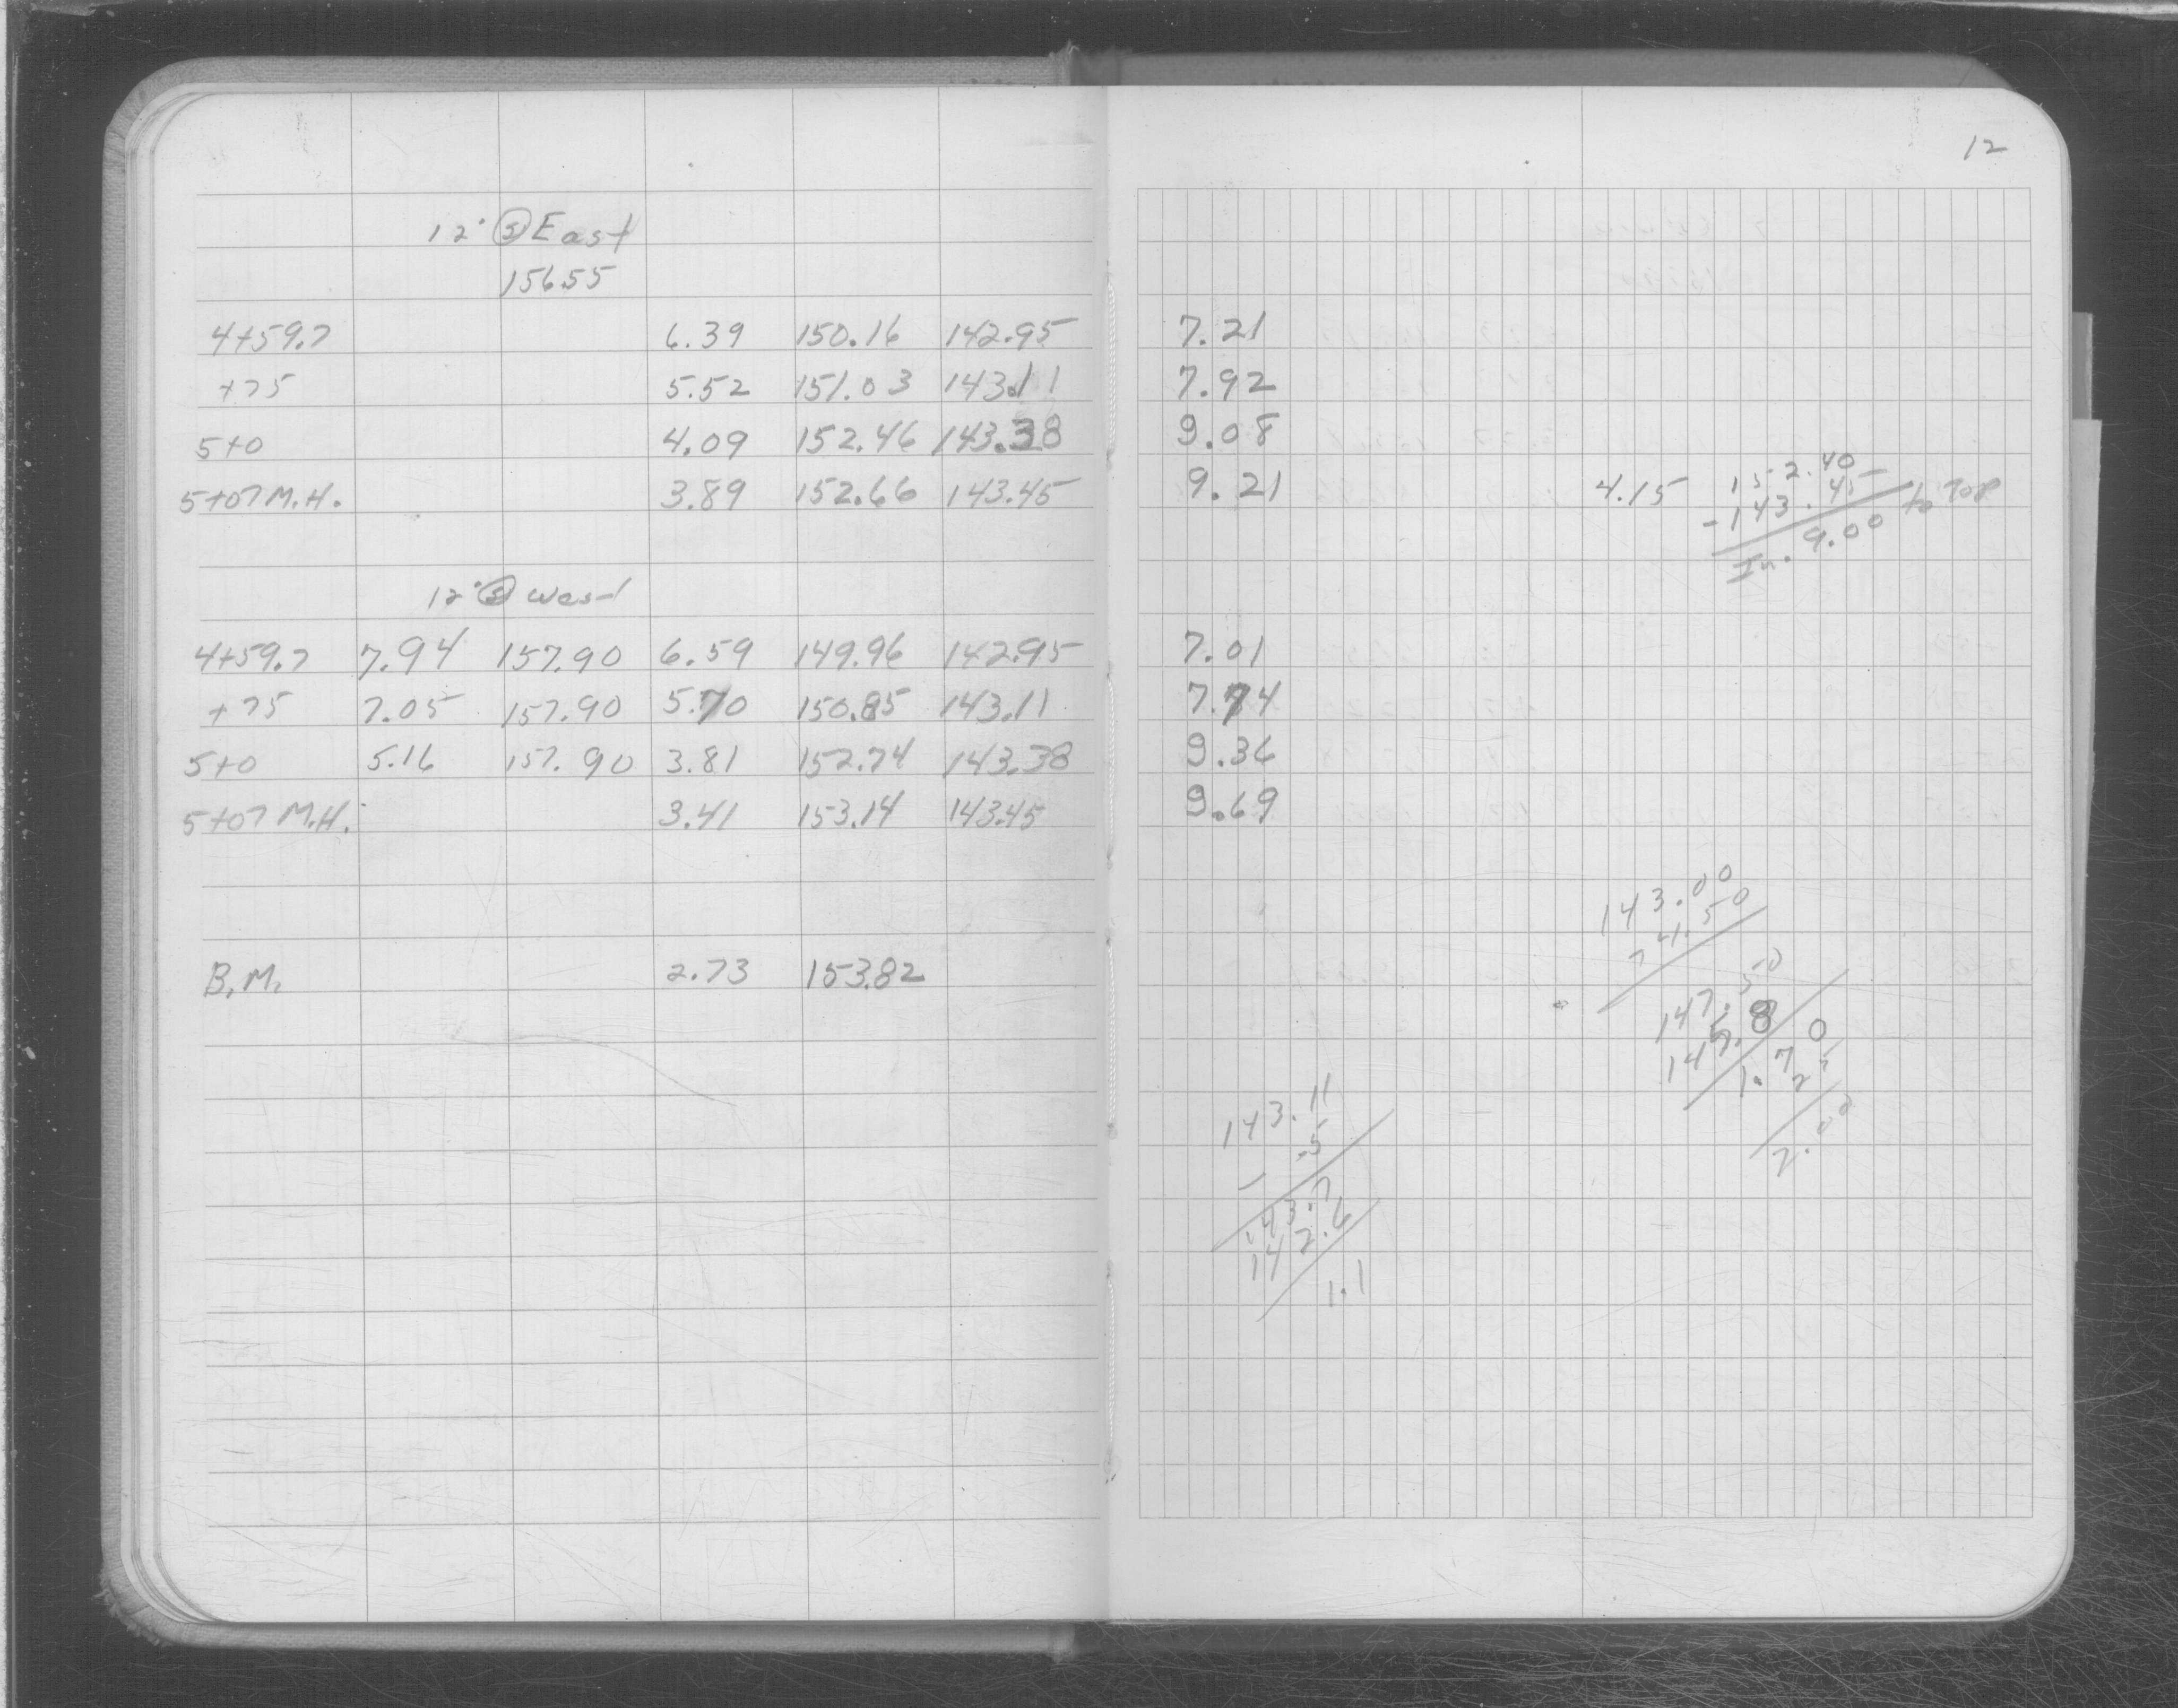 12
12' Ⓢ East
156.55
4+59.7 6.39 150.16 142.95 7.21
+75 5.52 151.03 143.11 7.92
5+0 4.09 152.46 143.38 9.08
5+07 M.H. 3.89 152.66 143.45 9.21 4.15
152.40
-143.45 to Top
In. 9.00
12' Ⓢ West
4+59.7 7.94 157.90 6.59 149.96 142.95 7.01
+75 7.05 157.90 5.70 150.85 143.11 7.74
5+0 5.16 157.90 3.81 152.74 143.38 9.36
5+07 M.H. 3.41 153.14 143.45 9.69
B.M. 2.73 153.82
143.00
4.50
147.50
1.70
2.00
143.11
.5
143.7
142.6
1.1